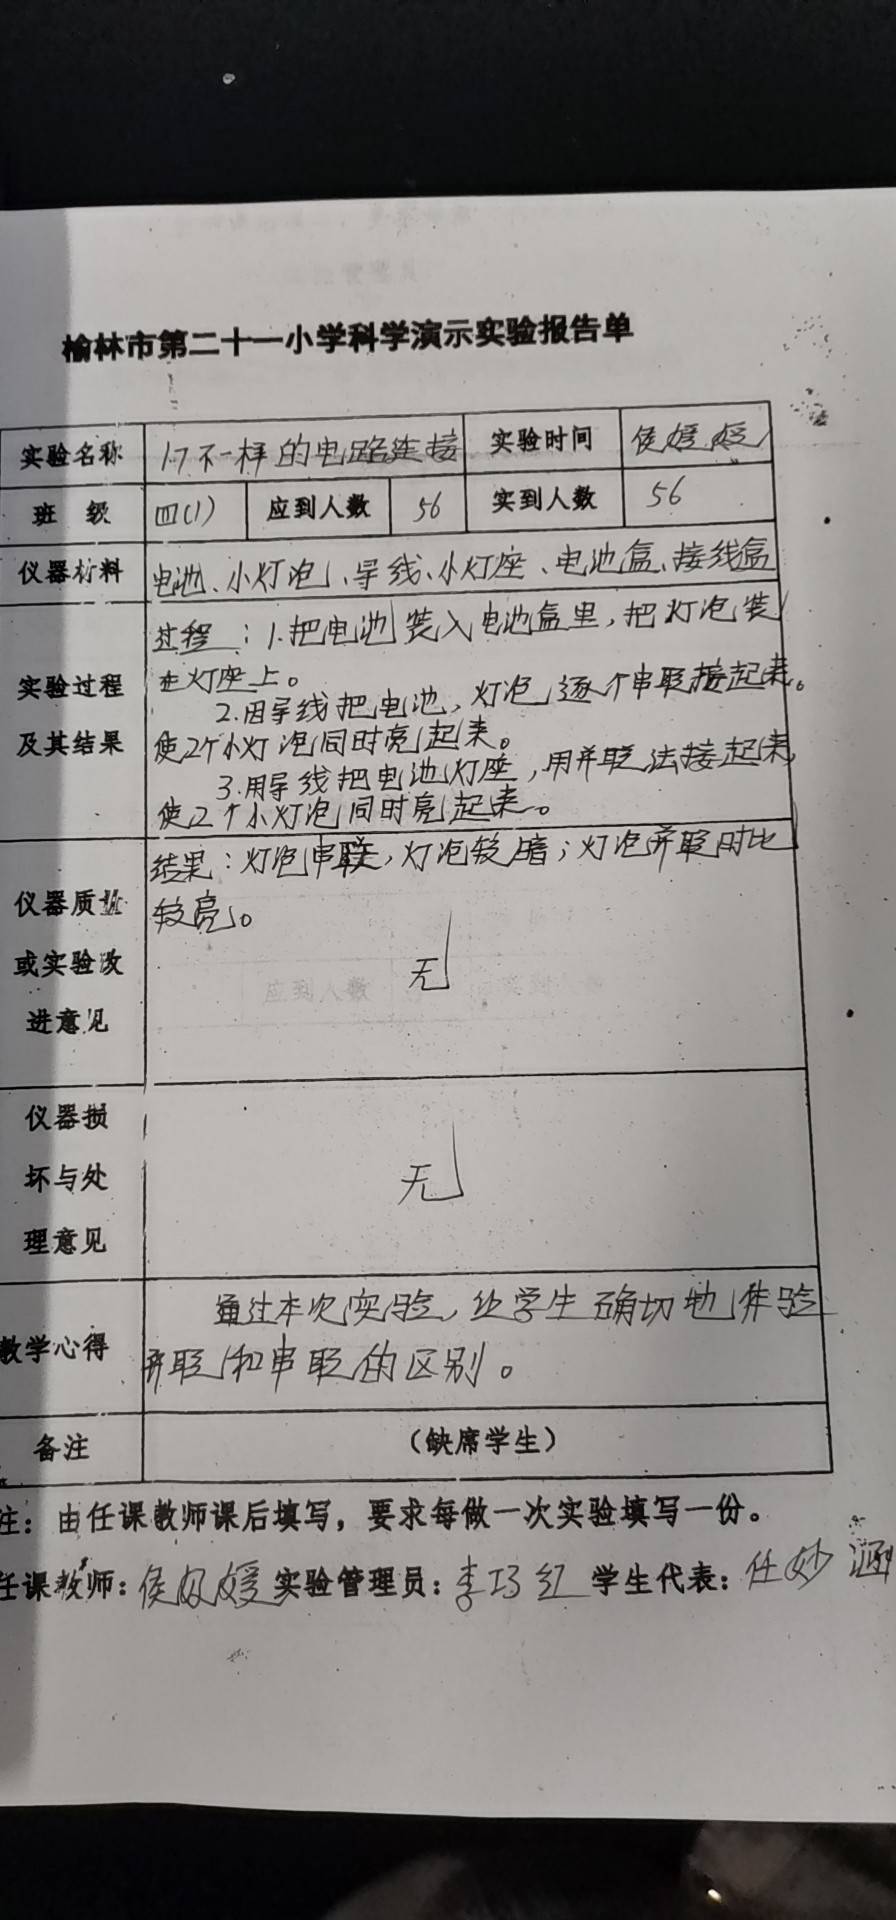 榆林市第二十一小学科学演示实验报告单
实验名称 17不一样的电路连接 实验时间 侯媛媛
班 级 四(1) 应到人数 56 实到人数 56
仪器材料 电池、小灯泡、导线、小灯座、电池盒、接线盒
实验过程及其结果
过程:1.把电池装入电池盒里,把灯泡装
在灯座上。
2.用导线把电池,灯泡逐个串联接起来。
使2个小灯泡同时亮起来。
3.用导线把电池灯座,用并联法接起来,
使2个小灯泡同时亮起来。
结果:灯泡串联,灯泡较暗;灯泡并联时比
较亮。
仪器质量
或实验改
进意见
无
仪器损
坏与处
理意见
无
教学心得
通过本次实验,让学生确切地体验
并联和串联的区别。
备注 (缺席学生)
注:由任课教师课后填写,要求每做一次实验填写一份。
任课教师:侯媛媛 实验管理员:李巧红 学生代表:任妙涵